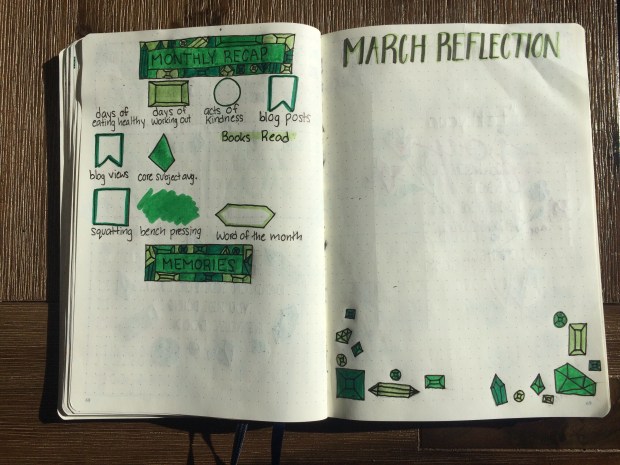 MONTHLY RECAP
days of eating healthy
days of working out
acts of kindness
blog posts
Books Read
blog views
core subject avg.
squatting
bench pressing
word of the month
MEMORIES
MARCH REFLECTION